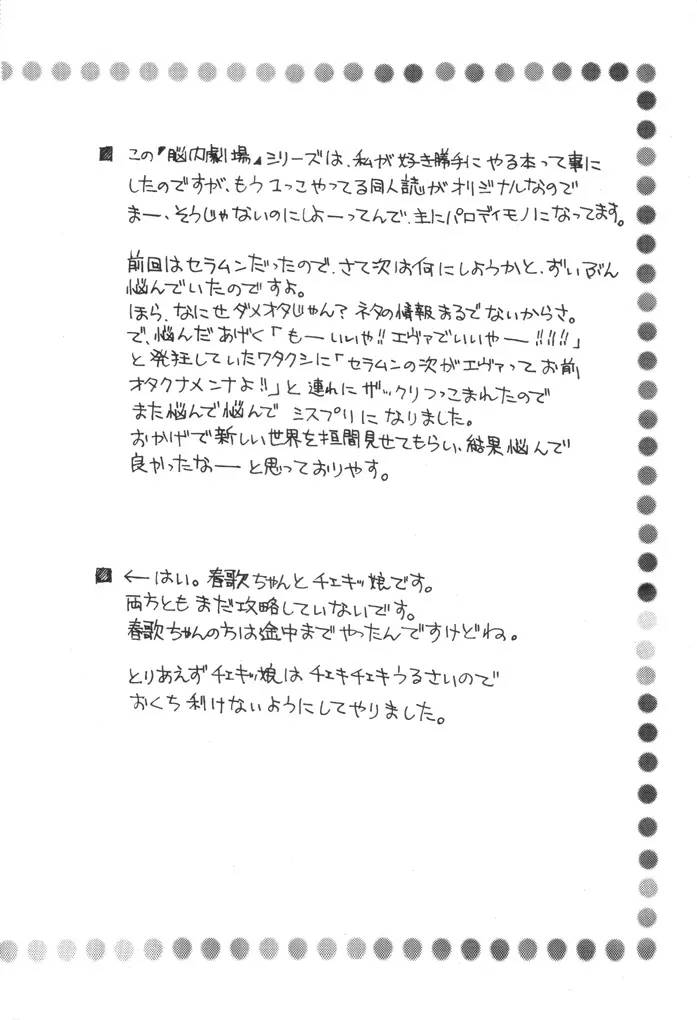 ■ この『脳内劇場』シリーズは、私が好き勝手にやる本って事に
したのですが、もう1つこやってる同人誌がオリジナルなので
まー、そうじゃないのにしよーってんで、主にパロディモノになってます。
前回はセラムンだったので、さて次は何にしようかと、ずいぶん
悩んでいたのですよ。
ほら、なにせダメオタじゃん？ネタの情報まるでないからさ。
で、悩んだあげく「もーいいや!!エヴァでいいやー!!!!」
と発狂していたワタクシに「セラムンの次がエヴァってお前
オタクナメンナよ!!」と連れにザックリつっこまれたので
また悩んで悩んで ミスプリになりました。
おかげで新しい世界を垣間見せてもらい、結果悩んで
良かったなーと思っておりやす。
■ ←はい。春歌ちゃんとチェキッ娘です。
両方ともまだ攻略していないです。
春歌ちゃんの方は途中までやったんですけどね。
とりあえずチェキッ娘はチェキチェキうるさいので
おくち利けないようにしてやりました。